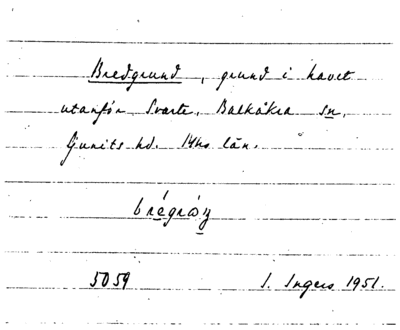 Bredgrund, grund i havet
utanför Svarte, Balkåkra sn,
Ljunits hd. Mhs län.
brégrán
5059 I. Ingers 1951.